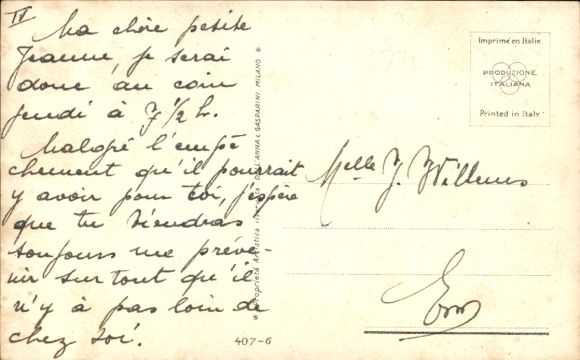 IV
Ma chère petite
Jeanne, je serai
donc au coin
jeudi à 7 1/2 h.
Malgré l'empê
chement qu'il pourrait
y avoir pour toi, j'espère
que tu viendras
toujours me préve-
nir surtout qu'il
n'y à pas loin de
chez toi.
407-6
✻ Proprietà Artistica riservata DALL'ANNA & GASPARINI MILANO ✻
Imprimé en Italie
PRODUZIONE
ITALIANA
Printed in Italy
Melle J. Willems